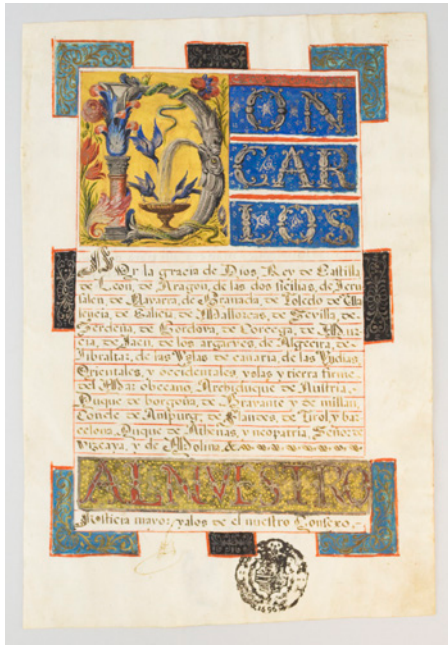 DON
CAR
LOS
Por la gracia de Dios, Rey de Castilla
de Leon, de Aragon, de las dos sicilias, de Jeru
salen, de Navarra, de Granada, de Toledo de Va
lençia, de Galicia, de Mallorcas, de Sevilla, de
Serdeña, de Cordova, de Corcega, de Mur
cia, de Jaen, de los argarves, de Algecira, de
Jibraltar, de las Yslas de canaria, de las Yndias,
Orientales, y occidentales, yslas y tierra firme
del Mar obceano, Archiduque de Austria,
Duque de borgoña, de Bravante y de millan,
Conde de Auspurg, de Flandes, de Tirol, y bar
celona, Duque de Athenas, y neopatria, Señor de
Vizcaya, y de Molina &
AL NVESTRO
Justicia mayor, yalos de el nuestro Consexo,